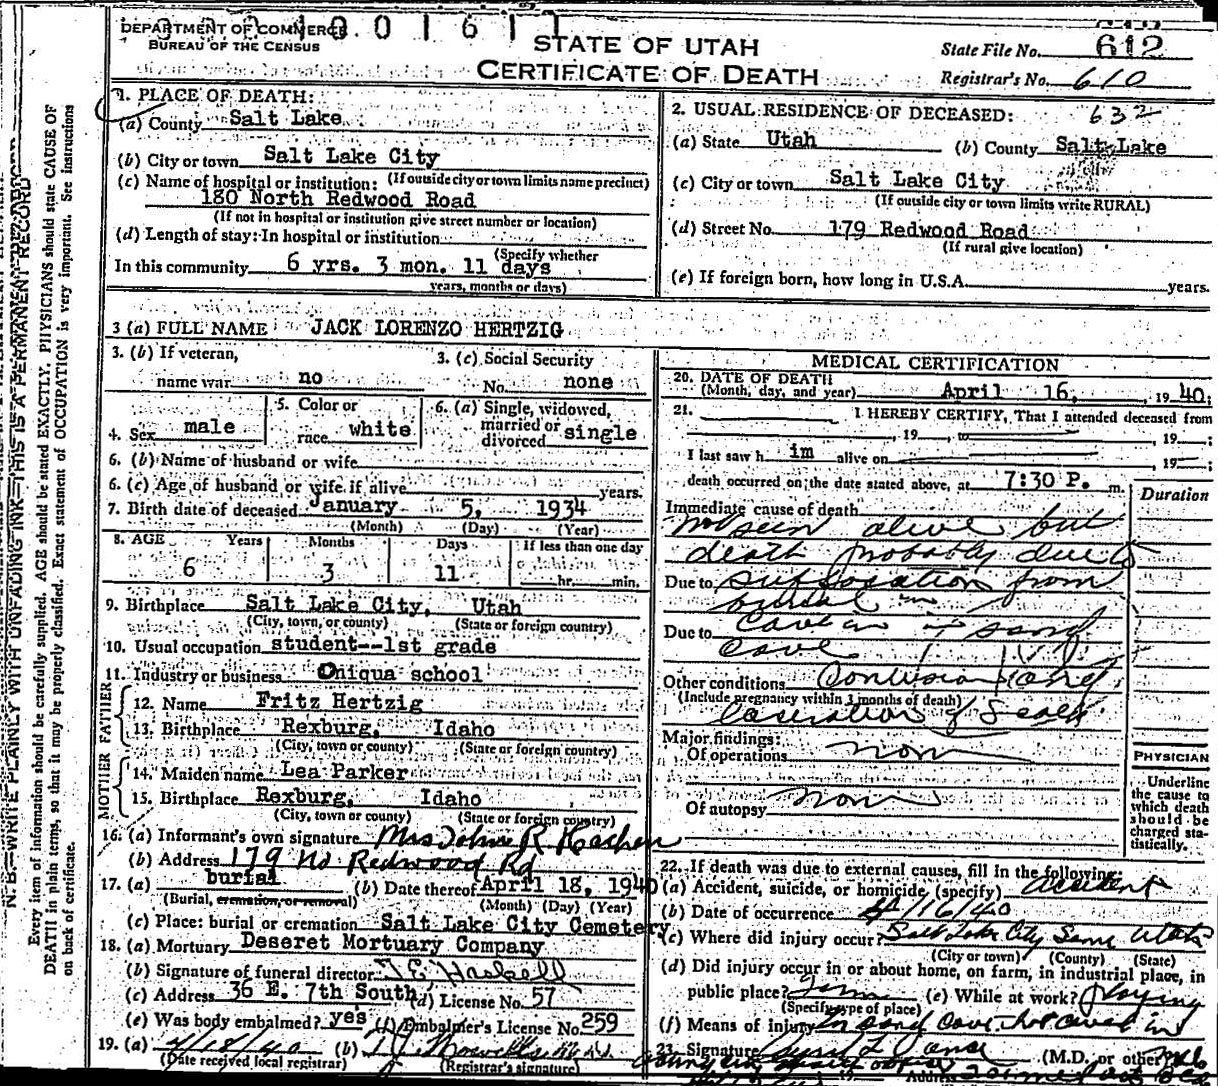 DEPARTMENT OF COMMERCE
BUREAU OF THE CENSUS
STATE OF UTAH
CERTIFICATE OF DEATH
State File No. 612
Registrar's No. 610
N. B.—WRITE PLAINLY WITH UNFADING INK—THIS IS A PERMANENT RECORD
Every item of information should be carefully supplied. AGE should be stated EXACTLY. PHYSICIANS should state CAUSE OF
DEATH in plain terms, so that it may be properly classified. Exact statement of OCCUPATION is very important. See instructions
on back of certificate.
1. PLACE OF DEATH:
(a) County Salt Lake
(b) City or town Salt Lake City
(c) Name of hospital or institution: (If outside city or town limits name precinct)
180 North Redwood Road
(If not in hospital or institution give street number or location)
(d) Length of stay: In hospital or institution
(Specify whether
In this community 6 yrs. 3 mon. 11 days
years, months or days)
2. USUAL RESIDENCE OF DECEASED: 632
(a) State Utah (b) County Salt Lake
(c) City or town Salt Lake City
(If outside city or town limits write RURAL)
(d) Street No. 179 Redwood Road
(If rural give location)
(e) If foreign born, how long in U.S.A. years.
3 (a) FULL NAME JACK LORENZO HERTZIG
3. (b) If veteran, name war no
3. (c) Social Security No. none
4. Sex male
5. Color or race white
6. (a) Single, widowed, married or divorced single
6. (b) Name of husband or wife
6. (c) Age of husband or wife if alive years.
7. Birth date of deceased January 5, 1934
(Month) (Day) (Year)
8. AGE Years Months Days If less than one day
6 3 11 hr. min.
9. Birthplace Salt Lake City, Utah
(City, town, or county) (State or foreign country)
10. Usual occupation student--1st grade
11. Industry or business Oniqua school
FATHER
12. Name Fritz Hertzig
13. Birthplace Rexburg, Idaho
(City, town or county) (State or foreign country)
MOTHER
14. Maiden name Lea Parker
15. Birthplace Rexburg, Idaho
(City, town or county) (State or foreign country)
16. (a) Informant's own signature Mrs John R
(b) Address 179 No Redwood Rd
17. (a) burial (b) Date thereof April 18, 1940
(Burial, cremation, or removal) (Month) (Day) (Year)
(c) Place: burial or cremation Salt Lake City Cemetery
18. (a) Mortuary Deseret Mortuary Company
(b) Signature of funeral director T E Haskell
(c) Address 36 E. 7th South (d) License No. 57
(e) Was body embalmed? yes (f) Embalmer's License No. 259
19. (a) 4/18/40 (b)
(Date received local registrar) (Registrar's signature)
MEDICAL CERTIFICATION
20. DATE OF DEATH
(Month, day, and year) April 16, 1940;
21. I HEREBY CERTIFY, That I attended deceased from
, 19 , to , 19 ;
I last saw him alive on , 19 ;
death occurred on the date stated above, at 7:30 P. m.
Duration
Immediate cause of death
not seen alive but
death probably due to
Due to suffocation from
burial in
Due to Cave in of sand
Cave
Other conditions Contusion and
(Include pregnancy within 3 months of death)
laceration of Scalp
Major findings:
Of operations non
Of autopsy non
PHYSICIAN
Underline the cause to which death should be charged statistically.
22. If death was due to external causes, fill in the following:
(a) Accident, suicide, or homicide, (specify) accident
(b) Date of occurrence 4/16/40
(c) Where did injury occur? Salt Lake City Same Utah
(City or town) (County) (State)
(d) Did injury occur in or about home, on farm, in industrial place, in
public place? (e) While at work? playing
(Specify type of place)
(f) Means of injury In sand cave that caved in
23. Signature (M.D. or other)
Address